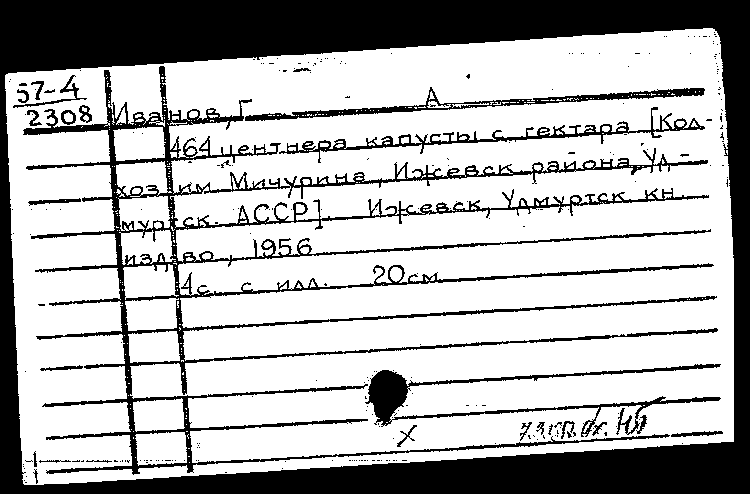 57-4
2308 Иванов, Г А
464 центнера капусты с гектара [Кол-
хоз им Мичурина, Ижевск района, Уд-
муртск. АССР]. Ижевск, Удмуртск кн.
изд-во, 1956
4с. с илл. 20см
х